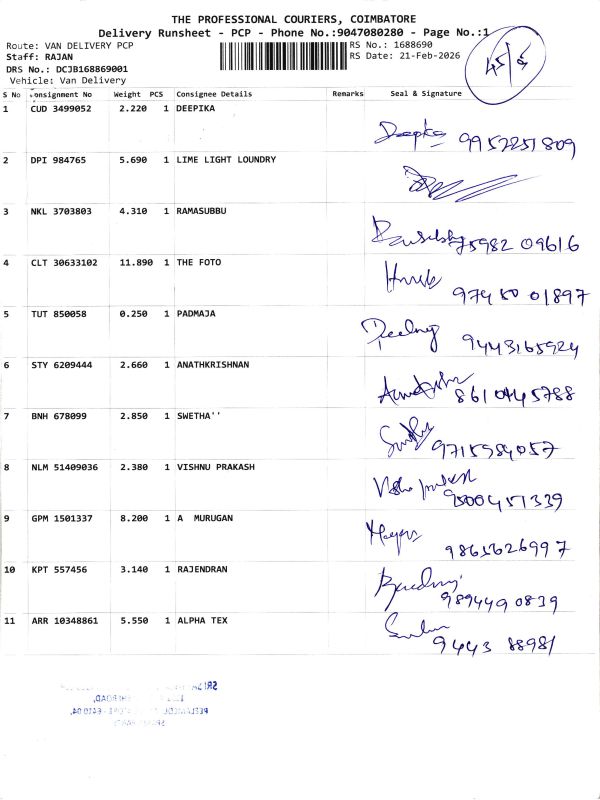 THE PROFESSIONAL COURIERS, COIMBATORE
Delivery Runsheet - PCP - Phone No.:9047080280 - Page No.:1
Route: VAN DELIVERY PCP RS No.: 1688690
Staff: RAJAN RS Date: 21-Feb-2026
DRS No.: DCJB168869001
Vehicle: Van Delivery
S No Consignment No Weight PCS Consignee Details Remarks Seal & Signature
1 CUD 3499052 2.220 1 DEEPIKA
Deepika 9952251809
2 DPI 984765 5.690 1 LIME LIGHT LOUNDRY
3 NKL 3703803 4.310 1 RAMASUBBU
75982 09616
4 CLT 30633102 11.890 1 THE FOTO
974 50 01897
5 TUT 850058 0.250 1 PADMAJA
9443165924
6 STY 6209444 2.660 1 ANATHKRISHNAN
8610445788
7 BNH 678099 2.850 1 SWETHA''
9715984057
8 NLM 51409036 2.380 1 VISHNU PRAKASH
9500451339
9 GPM 1501337 8.200 1 A MURUGAN
9865626997
10 KPT 557456 3.140 1 RAJENDRAN
9894490839
11 ARR 10348861 5.550 1 ALPHA TEX
9443 88981